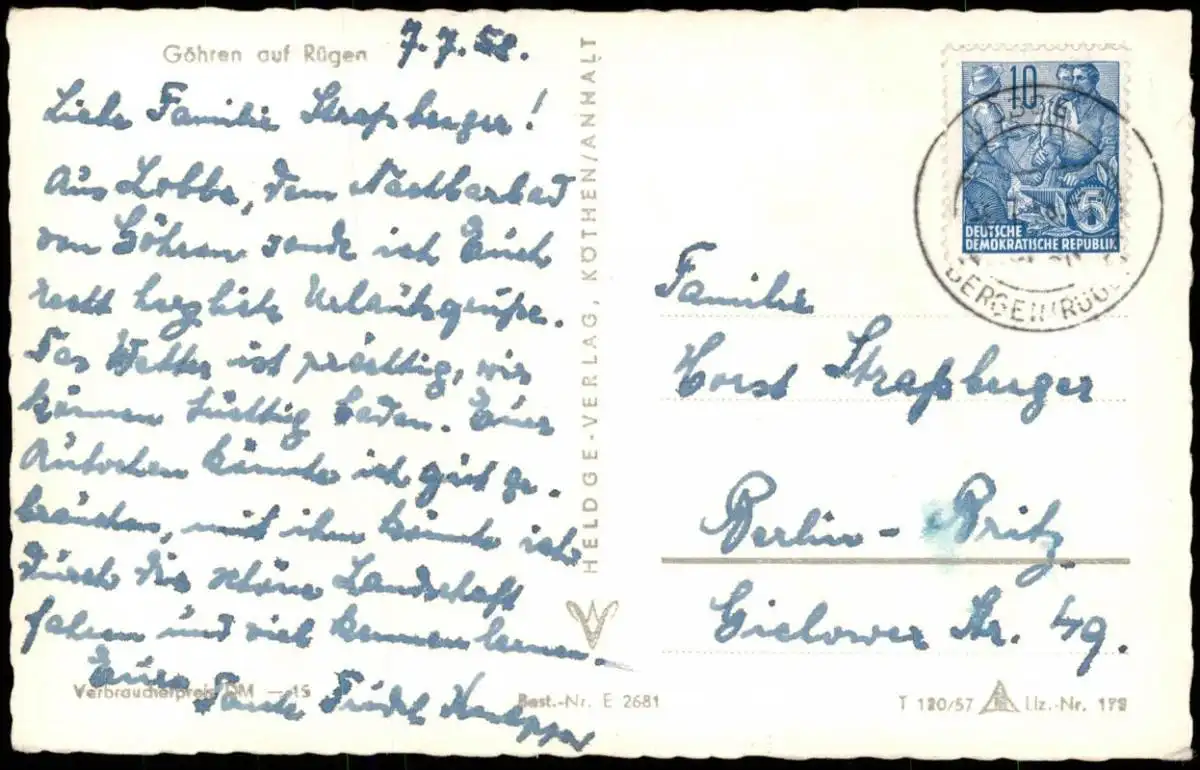 Göhren auf Rügen
7.7.58.
Liebe Familie Straßberger!
Aus Lobbe, dem Nachbarbad
von Göhren sende ich Euch
recht herzliche Urlaubsgrüße.
Das Wetter ist prächtig, wir
können tüchtig baden. Euer
Autochen könnte ich gut ge-
brauchen, mit ihm könnte ich
durch die schöne Landschaft
fahren und viel kennen lernen.
Eure Tante Trudel
Verbraucherpreis DM —15
Best.-Nr. E 2681
HELDGE-VERLAG, KÖTHEN/ANHALT
10
5
DEUTSCHE
DEMOKRATISCHE REPUBLIK
Familie
Horst Straßberger
Berlin-Britz
Gielower Str. 49.
T 120/57
Liz.-Nr.